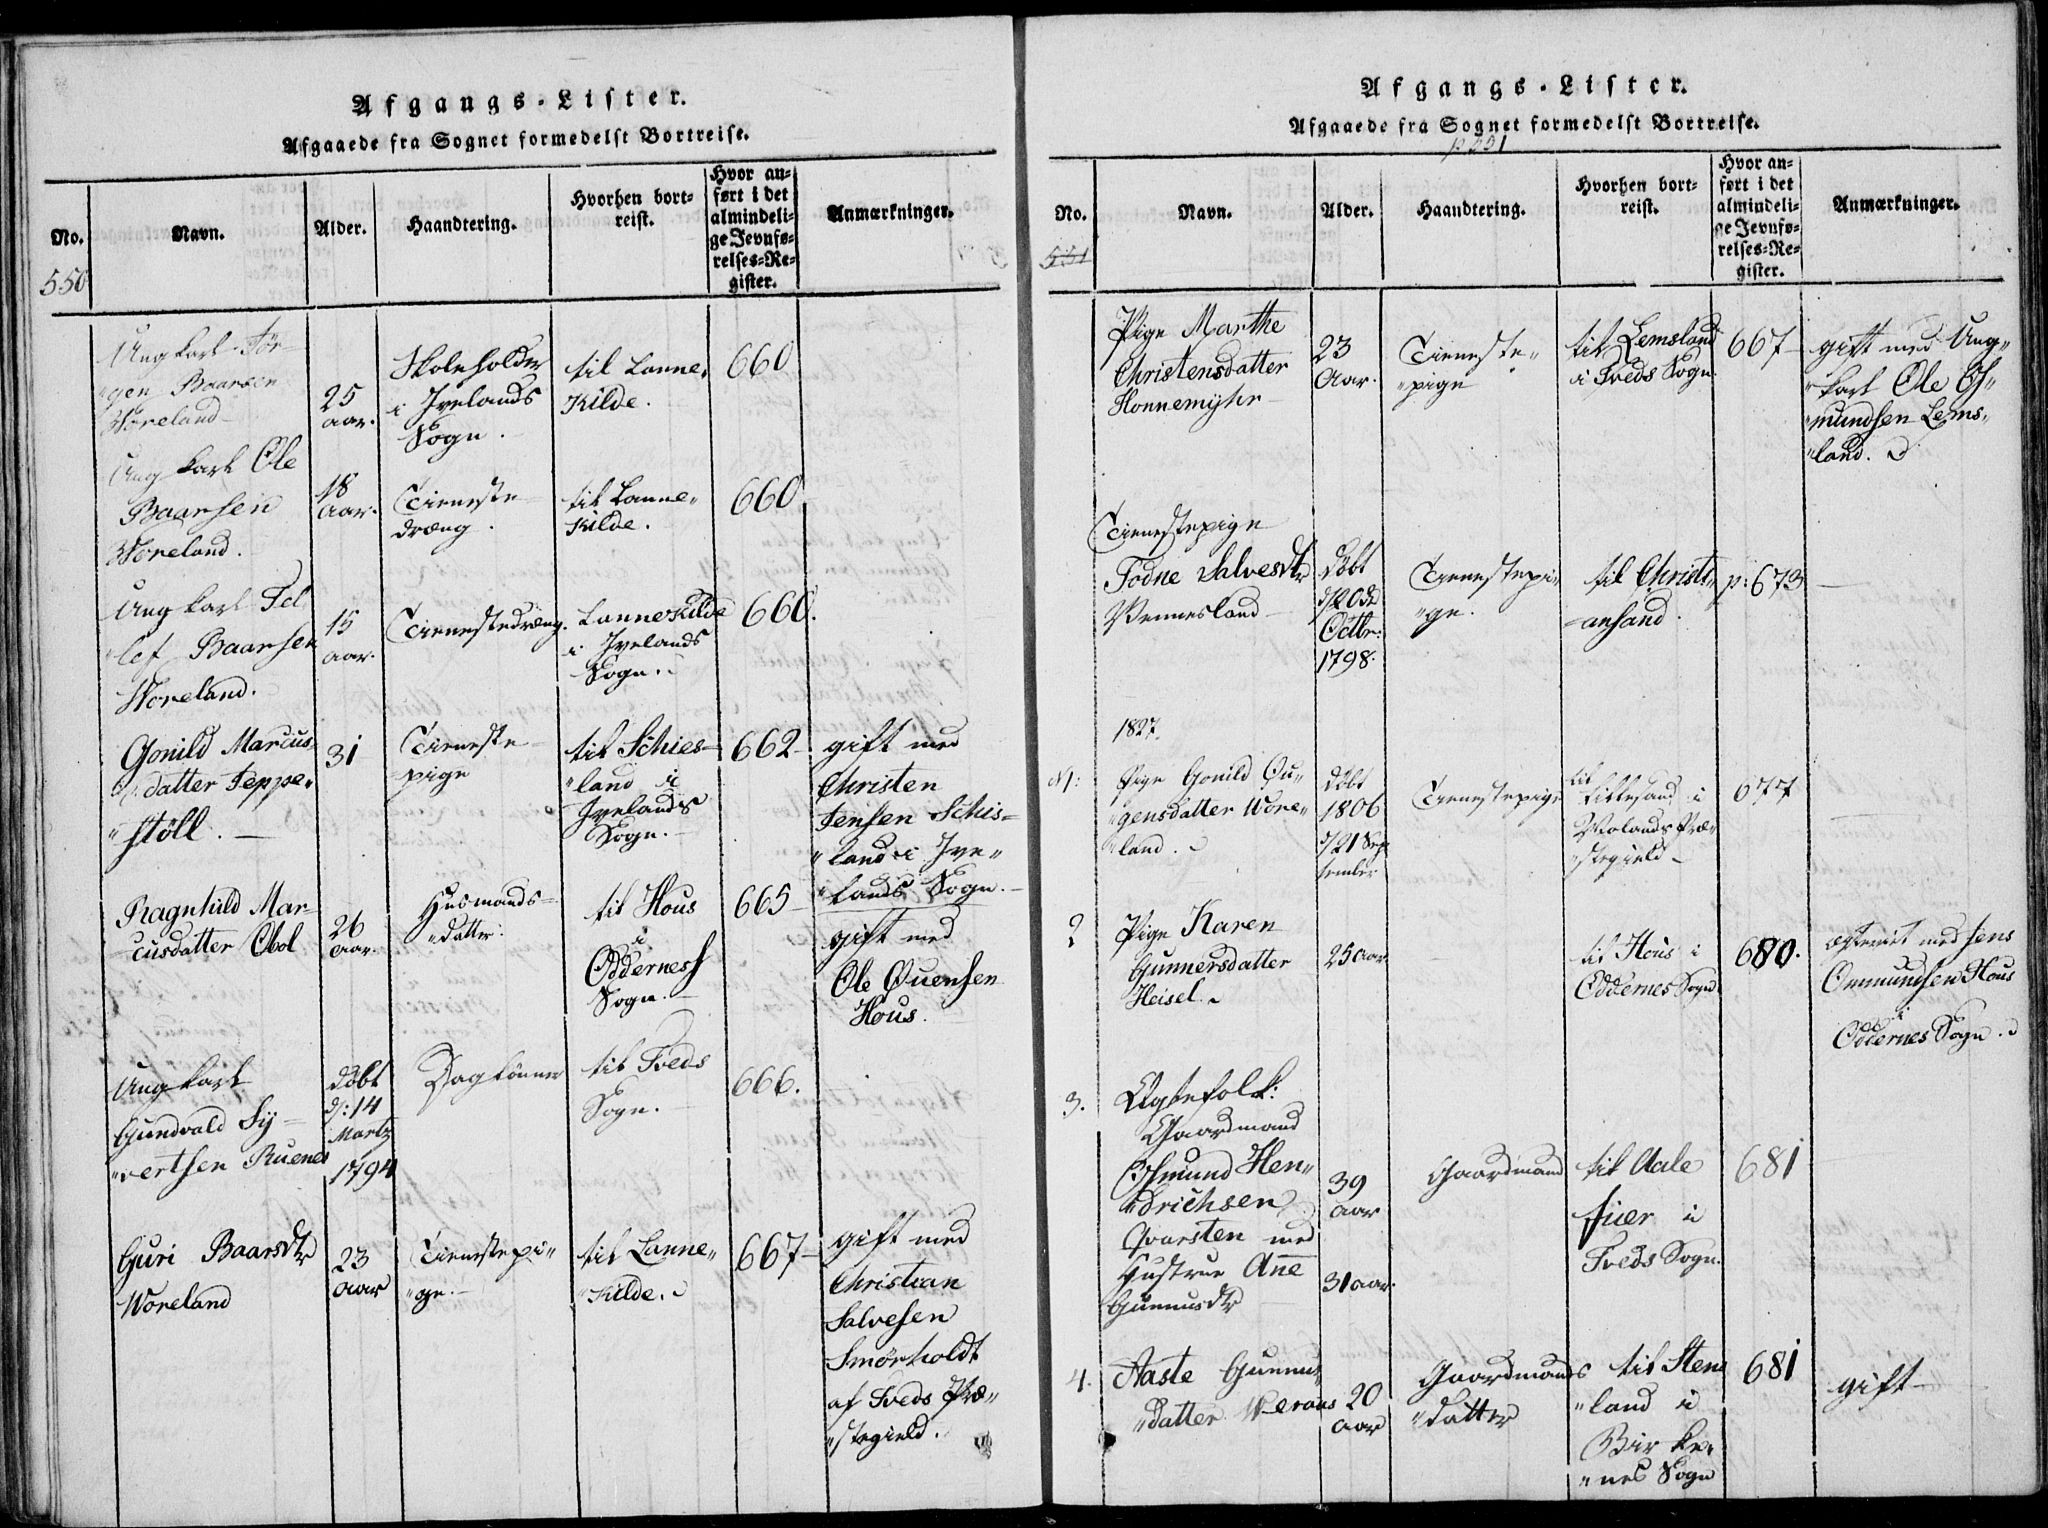 Afgangs-Lister.
Afgaaede fra Sognet formedelst Bortreise.
No.
Navn.
Alder.
Haandtering.
Hvorhen bort-
reist.
Hvor an-
ført i det
almindeli-
ge Jevnfø-
relses-Re-
gister.
Anmærkninger.
550
Ung karl Jør-
gen Baarsen
Woreland
25
aar.
Skoleholder
i Ivelands
Sogn.
til Lanne-
Kilde.
660
Ung karl Ole
Baarsen
Woreland.
18
aar.
Tieneste
dræng.
til Lanne„
Kilde.
660
Ung karl Tel
„lef Baarsen
Woreland.
15
aar.
Tienestedræng.
Lannekilde
i Ivelands
Sogn.
660.
Gonild Marcus
datter Teppe„
„støll.
31
Tieneste
pige
til Schies-
„land i
Ivelands
Sogn.
662
gift med
Christen
Jensen Schis-
„land i Ive„
„lands Sogn.
Ragnhild Mar-
cusdatter Obol
26
aar.
Husmands-
„datter.
til Hous
i
Oddernes
Sogn.
665
gift med
Ole Øuensen
Hous.
Ung karl
Gundvald Sy-
„vertsen Ruenes
døbt
d: 14
Martz
1794
Dagлønner
til Tveds
Sogn.
666.
Guri Baarsdtr
Woreland
23
aar
Tienestepi„
„ge.
til Lanne„
„Kilde.
667
gift med
Christian
Salvesen
Smørholdt
af Tveds Præ„
„stegield.
Afgangs-Lister.
Afgaaede fra Sognet formedelst Bortreise.
p. 551
No.
Navn.
Alder.
Haandtering.
Hvorhen bort-
reist.
Hvor an-
ført i det
almindeli-
ge Jevnfø-
relses-Re-
gister.
Anmærkninger.
551
Pige Marthe
Christensdatter
Honnemyhr
23
Aar.
Tieneste„
„pige
til Lemsland
i Tveds Sogn
667
gift med Ung„
„karl Ole Os„
„mundsen Lems„
„land.
Tienestepige
Todne Salvesdtr
Wennesland
døbt
Octbr:
1798.
Tienestepi„
„ge.
til Christi„
„ansand.
p: 673
1827.
Pige Gonild Øu„
„gensdatter Wore„
„land.
døbt
1806
d/21 Sep
tember
Tienestepige
til
Lillesand i
Præ„
„stegield
677
2
Pige Karen
Gunnersdatter
Heisel.
25 aar
til Hous i
Oddernes Sogn
680.
med Jens
Omundsen Hous
i
Oddernes Sogn.
3.
Ægtefolk:
Gaardmand
Osmund Hen„
„drichsen
Qvarsten med
Hustrue Ane
Gunnusdtr
39
aar
31 aar.
Gaardmand
til Aale
fiær i
Tveds Sogn.
681
4.
Aaste Gunnu„
„datter Weraas
20
aar
Gaardmands
„datter
til Stene
„land i
Birke„
„nes Sogn
681
gift